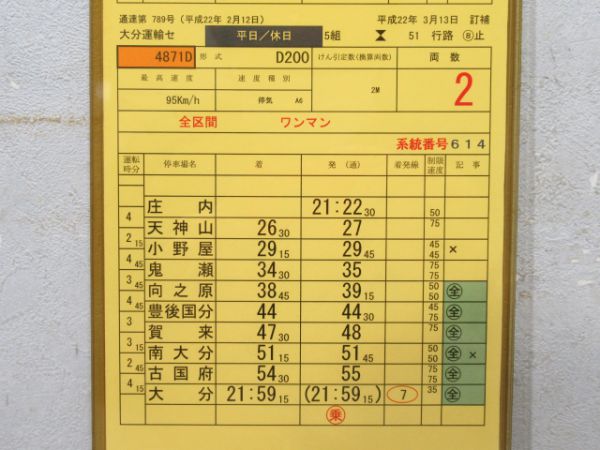 通達第 789号(平成22年 2月12日) 平成22年 3月13日 訂補
大分運輸セ 平日/休日 5組 51 行路 ㊇止
4871D 形式 D200 けん引定数(換算両数) 両数
最高速度 速度種別 2M 2
95Km/h 停気 A6
全区間 ワンマン
系統番号614
運転時分 停車場名 着 発(通) 着発線 制限速度 記事
庄内 21:22 30 50
4 天神山 26 30 27 75
2 15 小野屋 29 15 29 45 45 45 ×
4 45 鬼瀬 34 30 35 75 75
3 45 向之原 38 45 39 15 50 50 全
4 45 豊後国分 44 44 30 75 45 全
3 賀来 47 30 48 75 全
3 15 南大分 51 15 51 45 50 50 全 ×
2 45 古国府 54 30 55 75 75 全
4 15 大分 21:59 15 (21:59 15) 7 35 全
乗